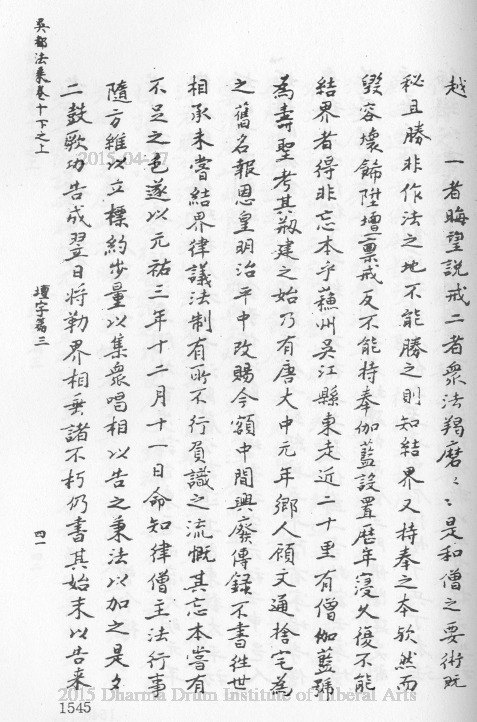 越　一者晦望説戒二者衆法羯磨〻〻是和僧之要術既
秘且勝非作法之地不能勝之則知結界又持奉之本欤然而
毀容壊飾陞壇禀戒反不能持奉伽藍設置歴年寖久復不能
結界者得非忘本乎蘓州吴江縣東走近二十里有僧伽藍號
為壽聖考其剏建之始乃有唐大中元年鄉人顧文通捨宅為
之舊名報恩皇明治平中改賜今額中間興廢傳録不書徃世
相承未嘗結界律議法制有所不行員識之流慨其忘本嘗有
不足之色遂以元祐三年十二月十一日命知律僧主法行事
隨方維以立標約步量以集衆唱相以告之秉法以加之是夕
二鼓歌功告成翌日将勒界相垂諸不朽仍書其始末以告来
吴都法乗卷十下之上
壇字篇三
四一
1545
2015-04-27
2015 Dharma Drum Institute of Liberal Arts